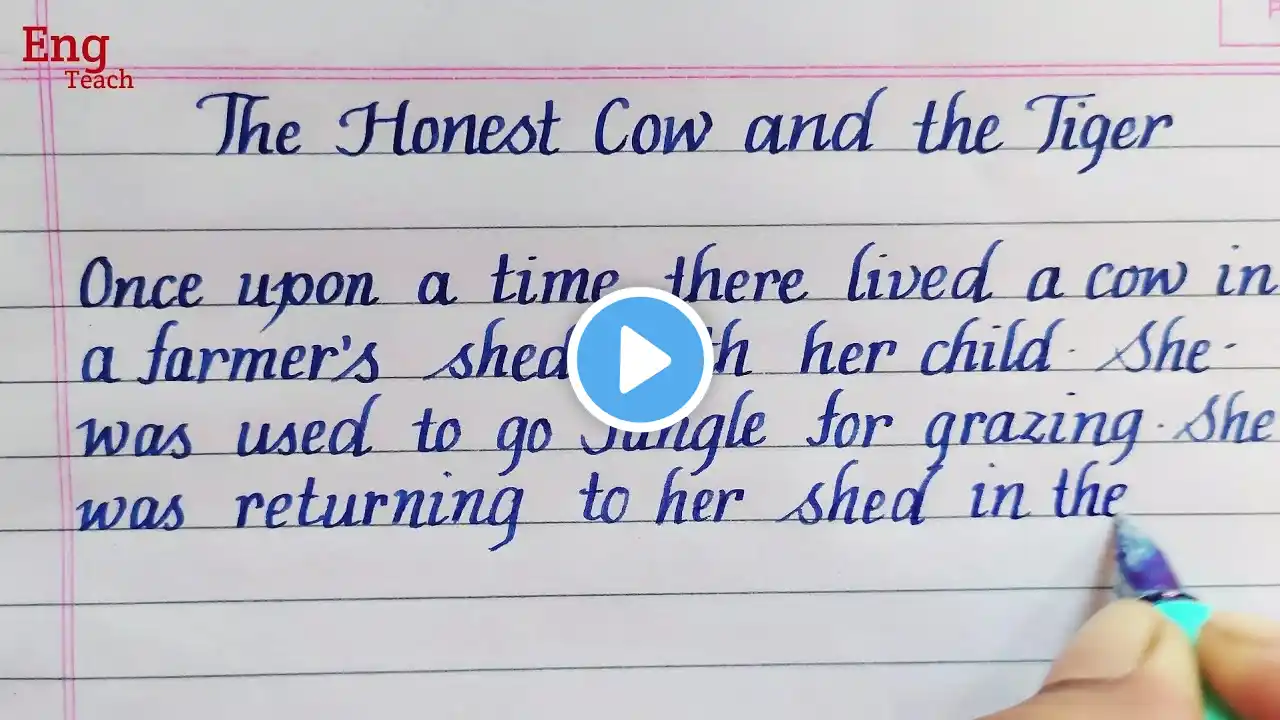 Eng
Teach
The Honest Cow and the Tiger
Once upon a time there lived a cow in
a farmer's shed her child. She
was used to go Jungle for grazing. She
was returning to her shed in the